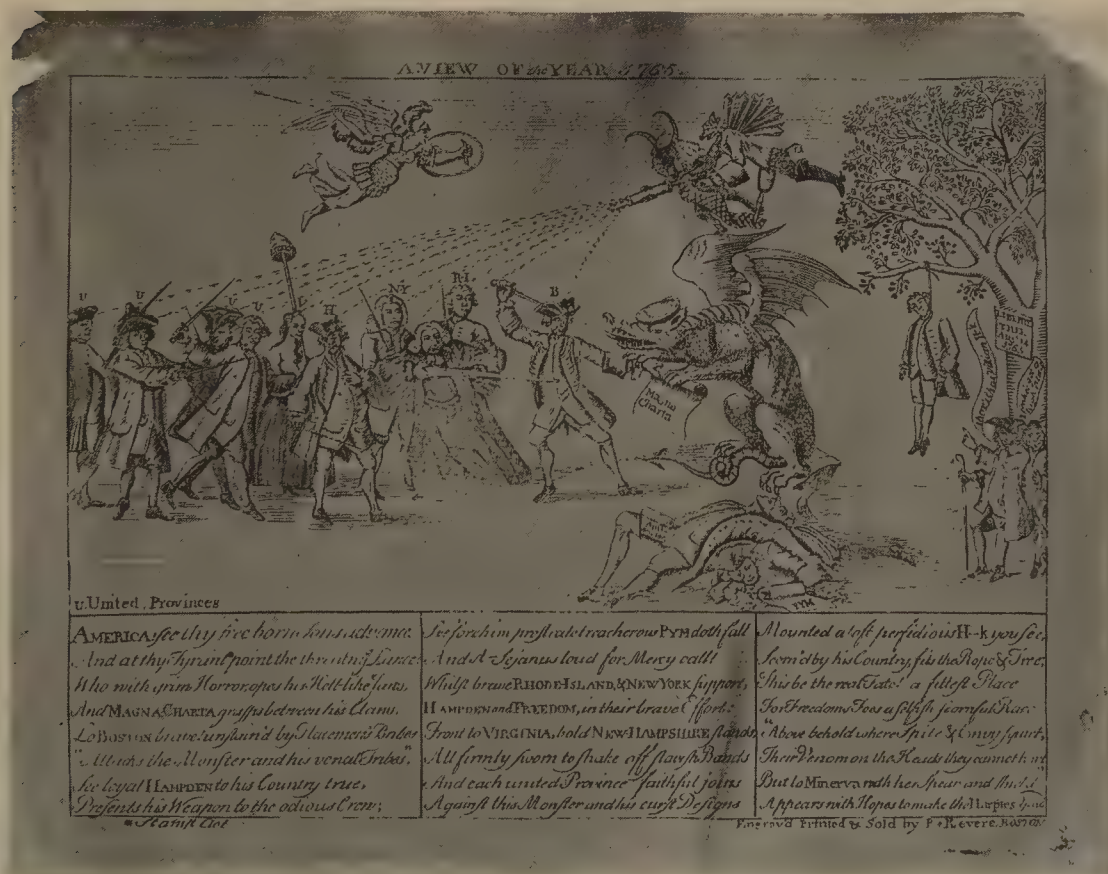 A VIEW OF the YEAR 1765.
U
U
U
U
L
H
NY
RI
B
Magna
Charta
PYM
U. United Provinces
AMERICA see thy free born sons advance
And at thy Tyrant point the threat'ng Lance
Who with grim Horror opes his Hell-like Jaws,
And MAGNA CHARTA grasps between his Claws.
Lo BOSTON brave! unstain'd by Placemen's Bribes
Attacks the Monster and his venal Tribes.
See loyal HAMPDEN to his Country true,
Presents his Weapon to the odious Crew;
Stamp Act
See 'fore him prostrate treacherous PYM doth fall
And A- Sejanus loud for Mercy call!
Whilst brave RHODE-ISLAND & NEW YORK support,
HAMPDEN and FREEDOM, in their brave Effort:
Front to VIRGINIA, bold NEW-HAMPSHIRE stands,
All firmly sworn to shake off slavish Bands
And each united Province faithful joins
Against this Monster and his curst Designs
Mounted aloft perfidious H--k you see,
Scorn'd by his Country, fits the Rope & Tree;
This be the real Fate! a fittest Place
For Freedoms Foes a selfish scornful Race!
"Above behold where Spite & Envy squirt,
Their Venom on the Heads they cannot hurt
But lo Minerva with her Spear and Shield
Appears with Hopes to make the Harpies
Engrav'd Printed & Sold by P. Revere. BOSTON